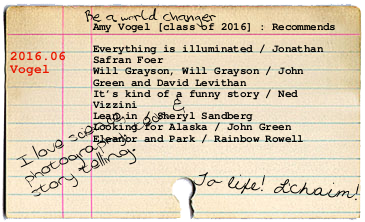 Be a world changer
Amy Vogel [class of 2016] : Recommends
2016.06
Vogel
Everything is illuminated / Jonathan
Safran Foer
Will Grayson, Will Grayson / John
Green and David Levithan
It's kind of a funny story / Ned
Vizzini
Lean in / Sheryl Sandberg
Looking for Alaska / John Green
Eleanor and Park / Rainbow Rowell
I love science,
photography, &
story telling.
To life! L'chaim!